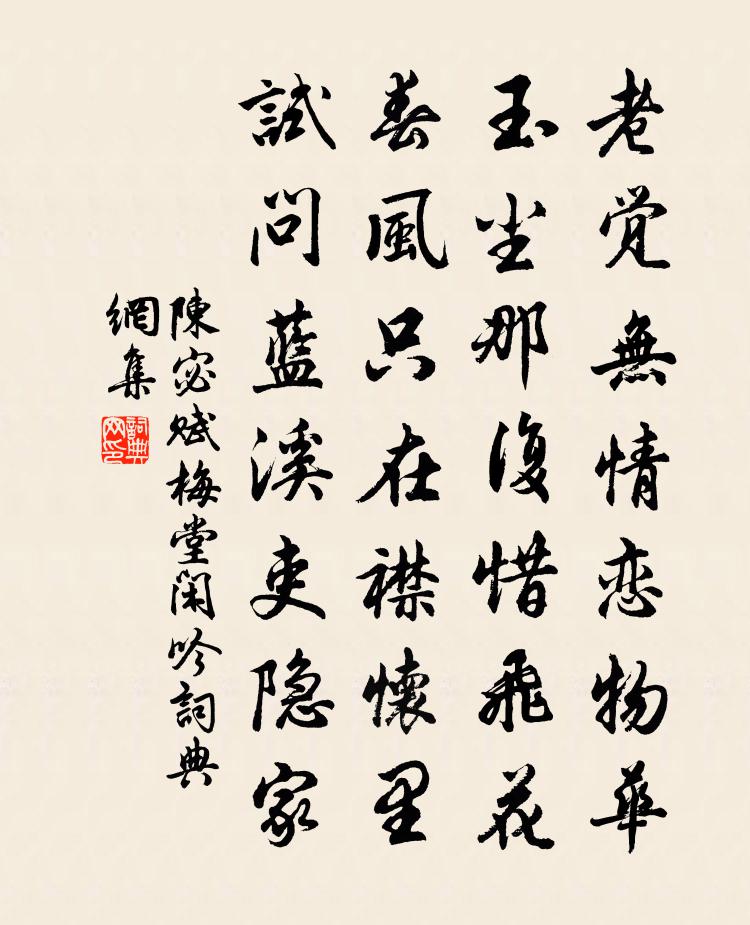 老觉無情恋物華
玉尘那復惜飛花
春風只在襟懷里
試問藍溪吏隐家
陳宓赋梅堂閑吟詞典
網集
詞典网印